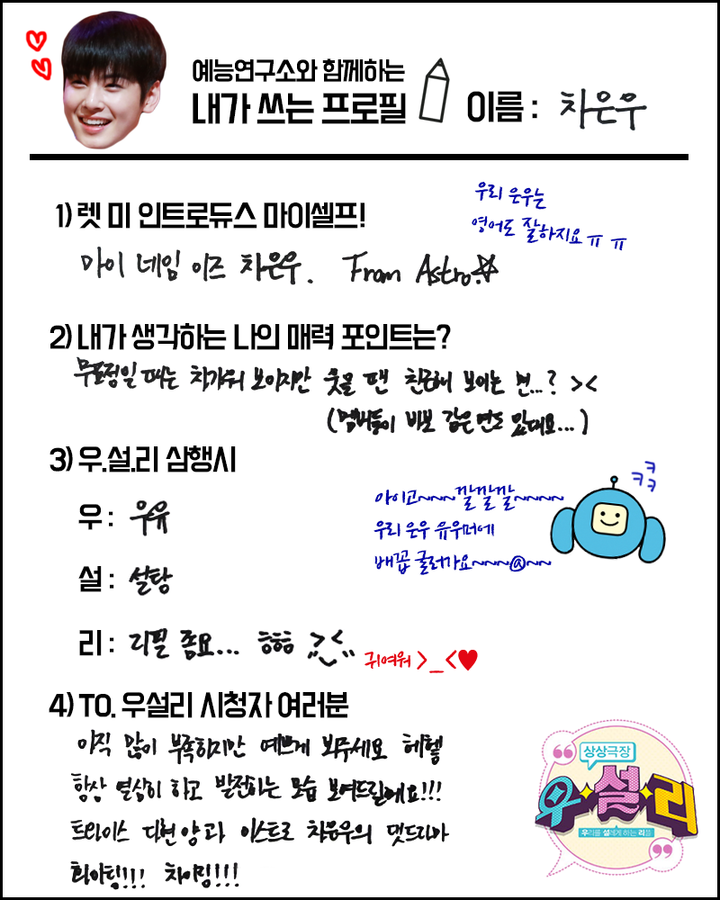 예능연구소와 함께하는
내가 쓰는 프로필 이름 : 차은우
1) 렛 미 인트로듀스 마이셀프!
우리 은우는
영어도 잘하지요 ㅠ ㅠ
마이 네임 이즈 차은우. From Astro.☆
2) 내가 생각하는 나의 매력 포인트는?
무표정일 때는 차가워 보이지만 웃을 땐 친근해 보이는 면...? ><
(멤버들이 바보 같은 면도 있대요...)
3) 우.설.리 삼행시
우 : 우유
설 : 설탕
리 : 리필 좀요... ㅎㅎㅎ ><
아이고~~~껄껄껄~~~~
우리 은우 유우머에
배꼽 굴러가요~~~@~~
ㅋ
ㅋ ㅋ
귀여워 >_<♥
4) TO. 우설리 시청자 여러분
아직 많이 부족하지만 예쁘게 봐주세요 헤헿
항상 열심히 하고 발전하는 모습 보여드릴게요!!!
트와이스 다현양과 아스트로 차은우의
화이팅!!! 차이밍!!!
상상극장
우·설·리
우리를 설레게 하는 리플